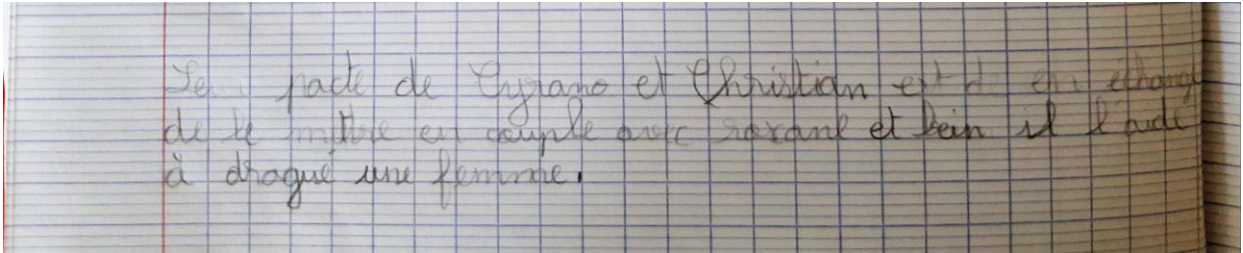 Le pacte de Cyrano et Christian est d en échange
de le mettre en couple avec roxane et bein il l'aide
à dragué une femme.